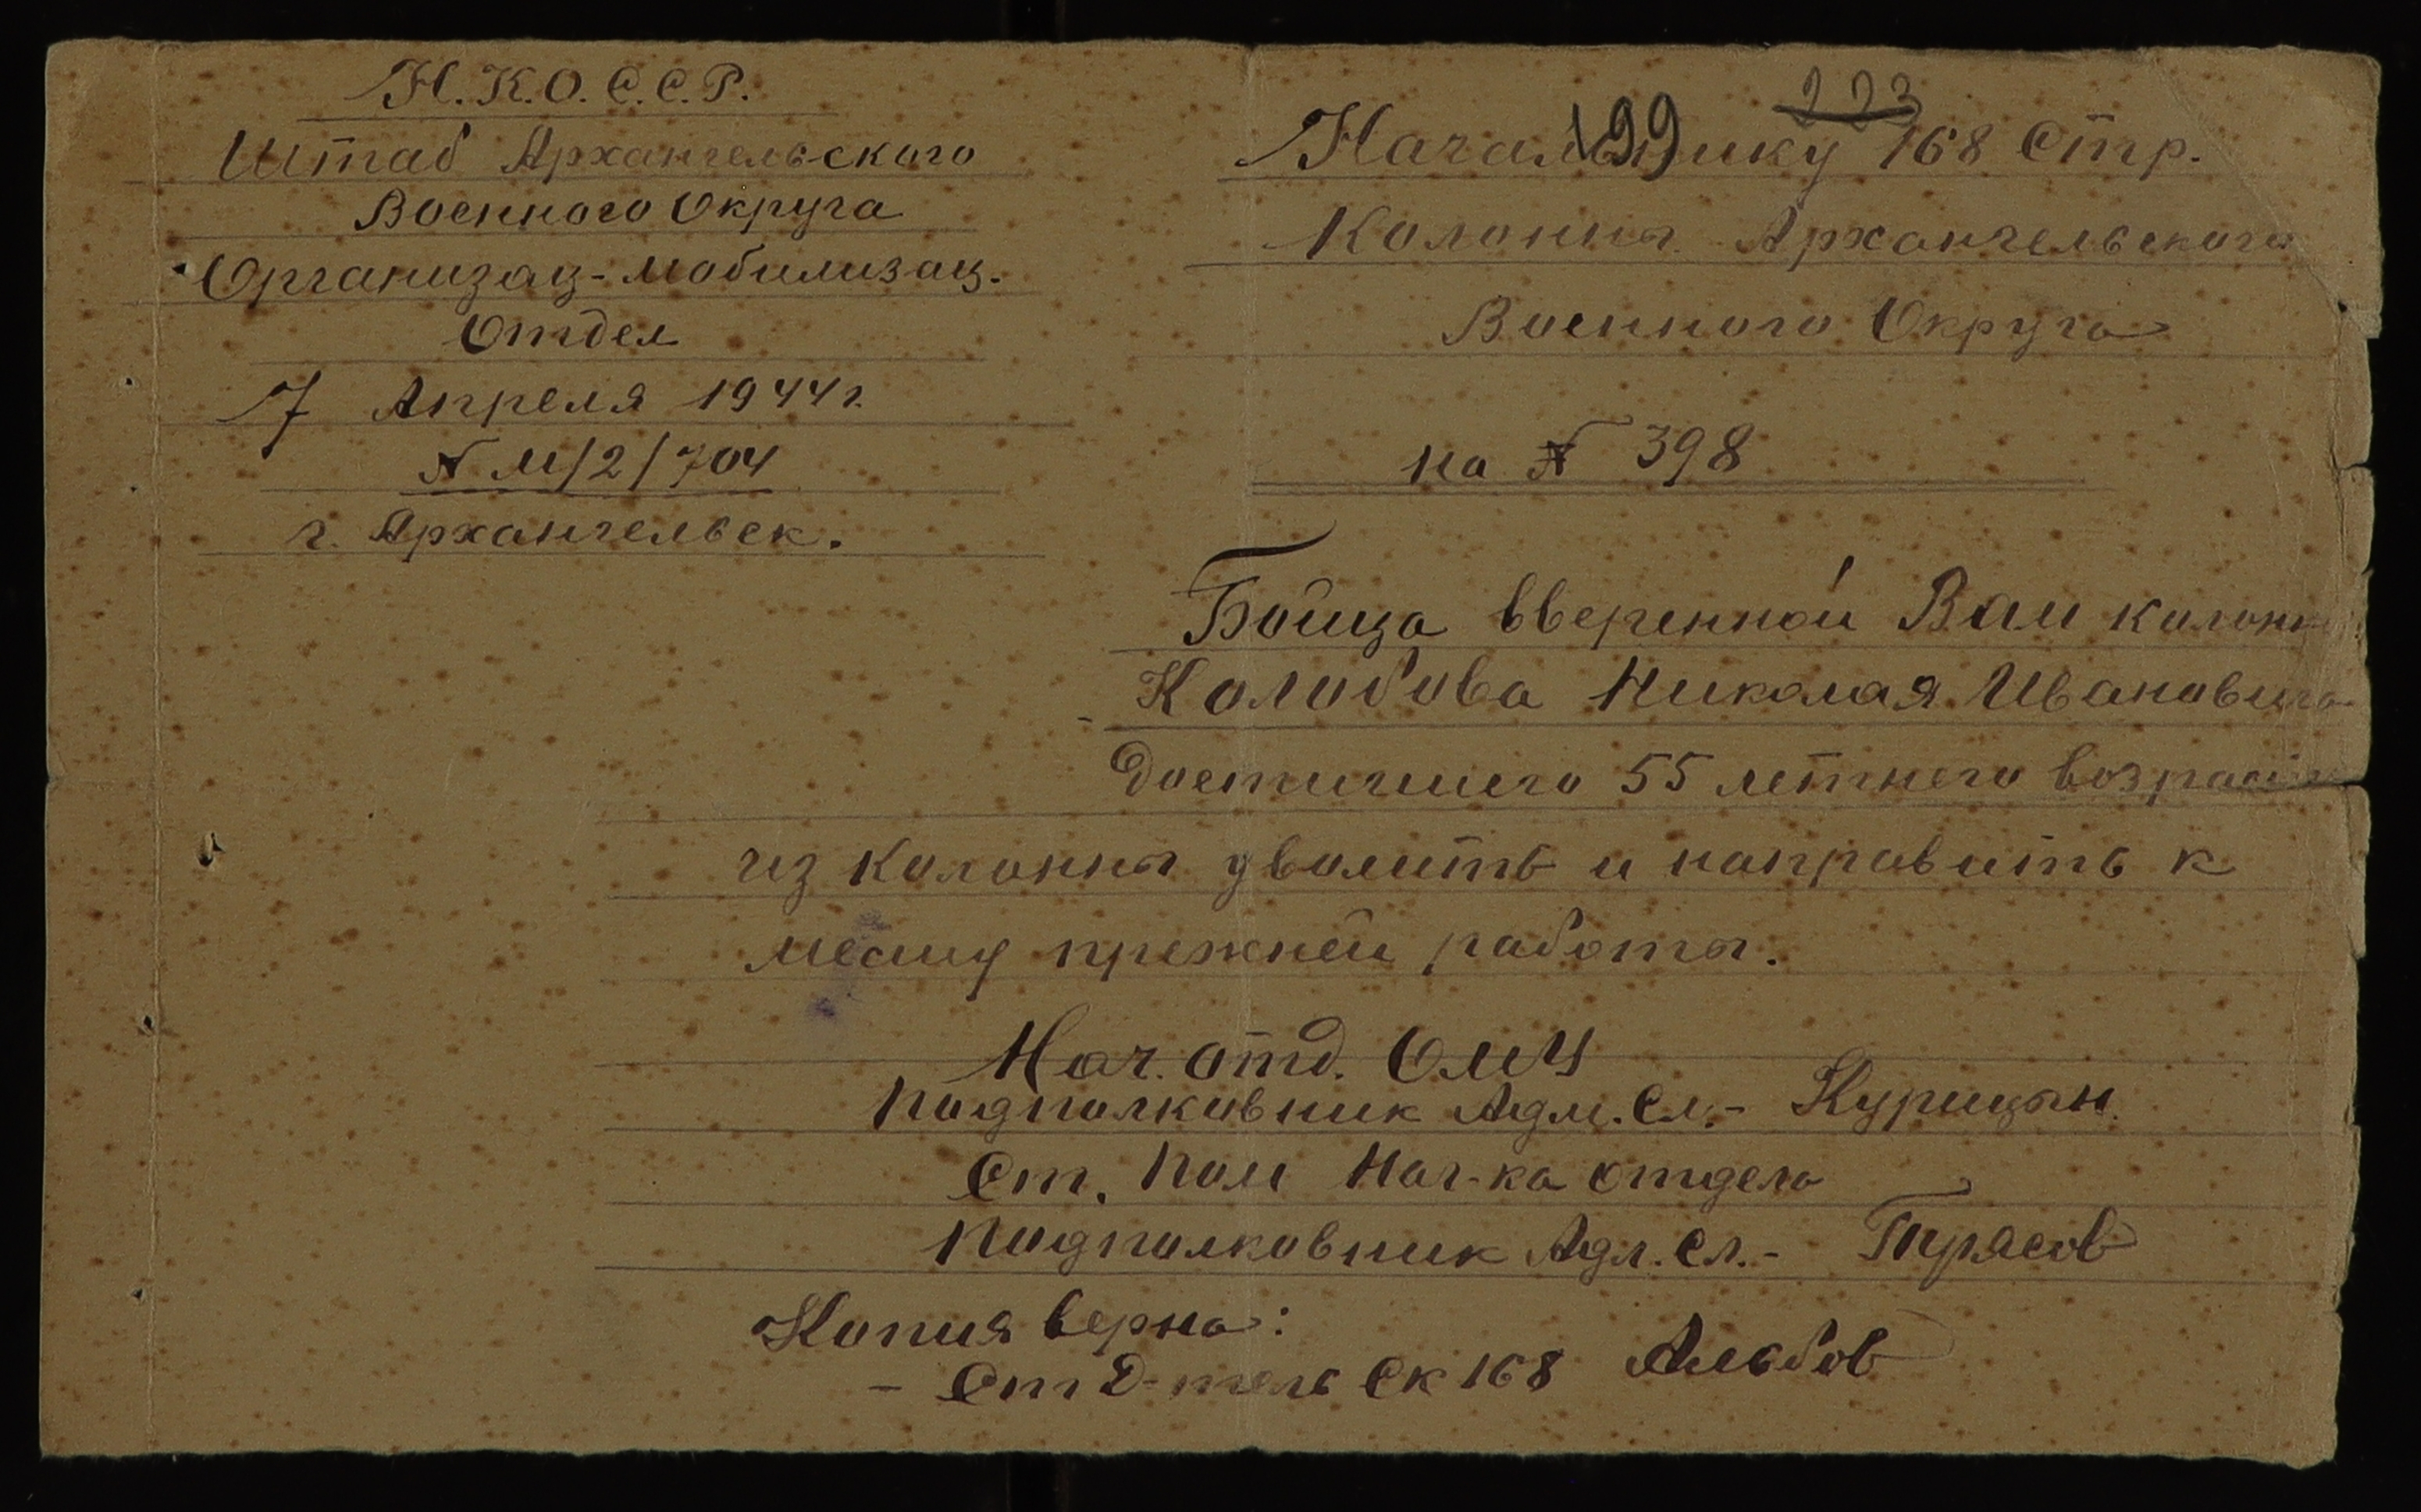 Н.К.О.С.С.Р.
Штаб Архангельского
Военного Округа
Организац-мобилизац.
Отдел
7 Апреля 1944 г.
№ М/2/704
г. Архангельск.
223
199
Начальнику 168 Стр.
Колонны Архангельского
Военного Округа
на № 398
Бойца вверенной Вам колонны
Колобова Николая Ивановича
достигшего 55 летнего возраста
из колонны уволить и направить к
месту прежней работы.
Нач. отд. ОМЧ
Подполковник Адм. Сл. - Курицын
Ст. Пом Нач-ка отдела
Подполковник Адм. Сл. - Тырясов
Копия верна:
- Ст Д-тель СК 168 Альбов